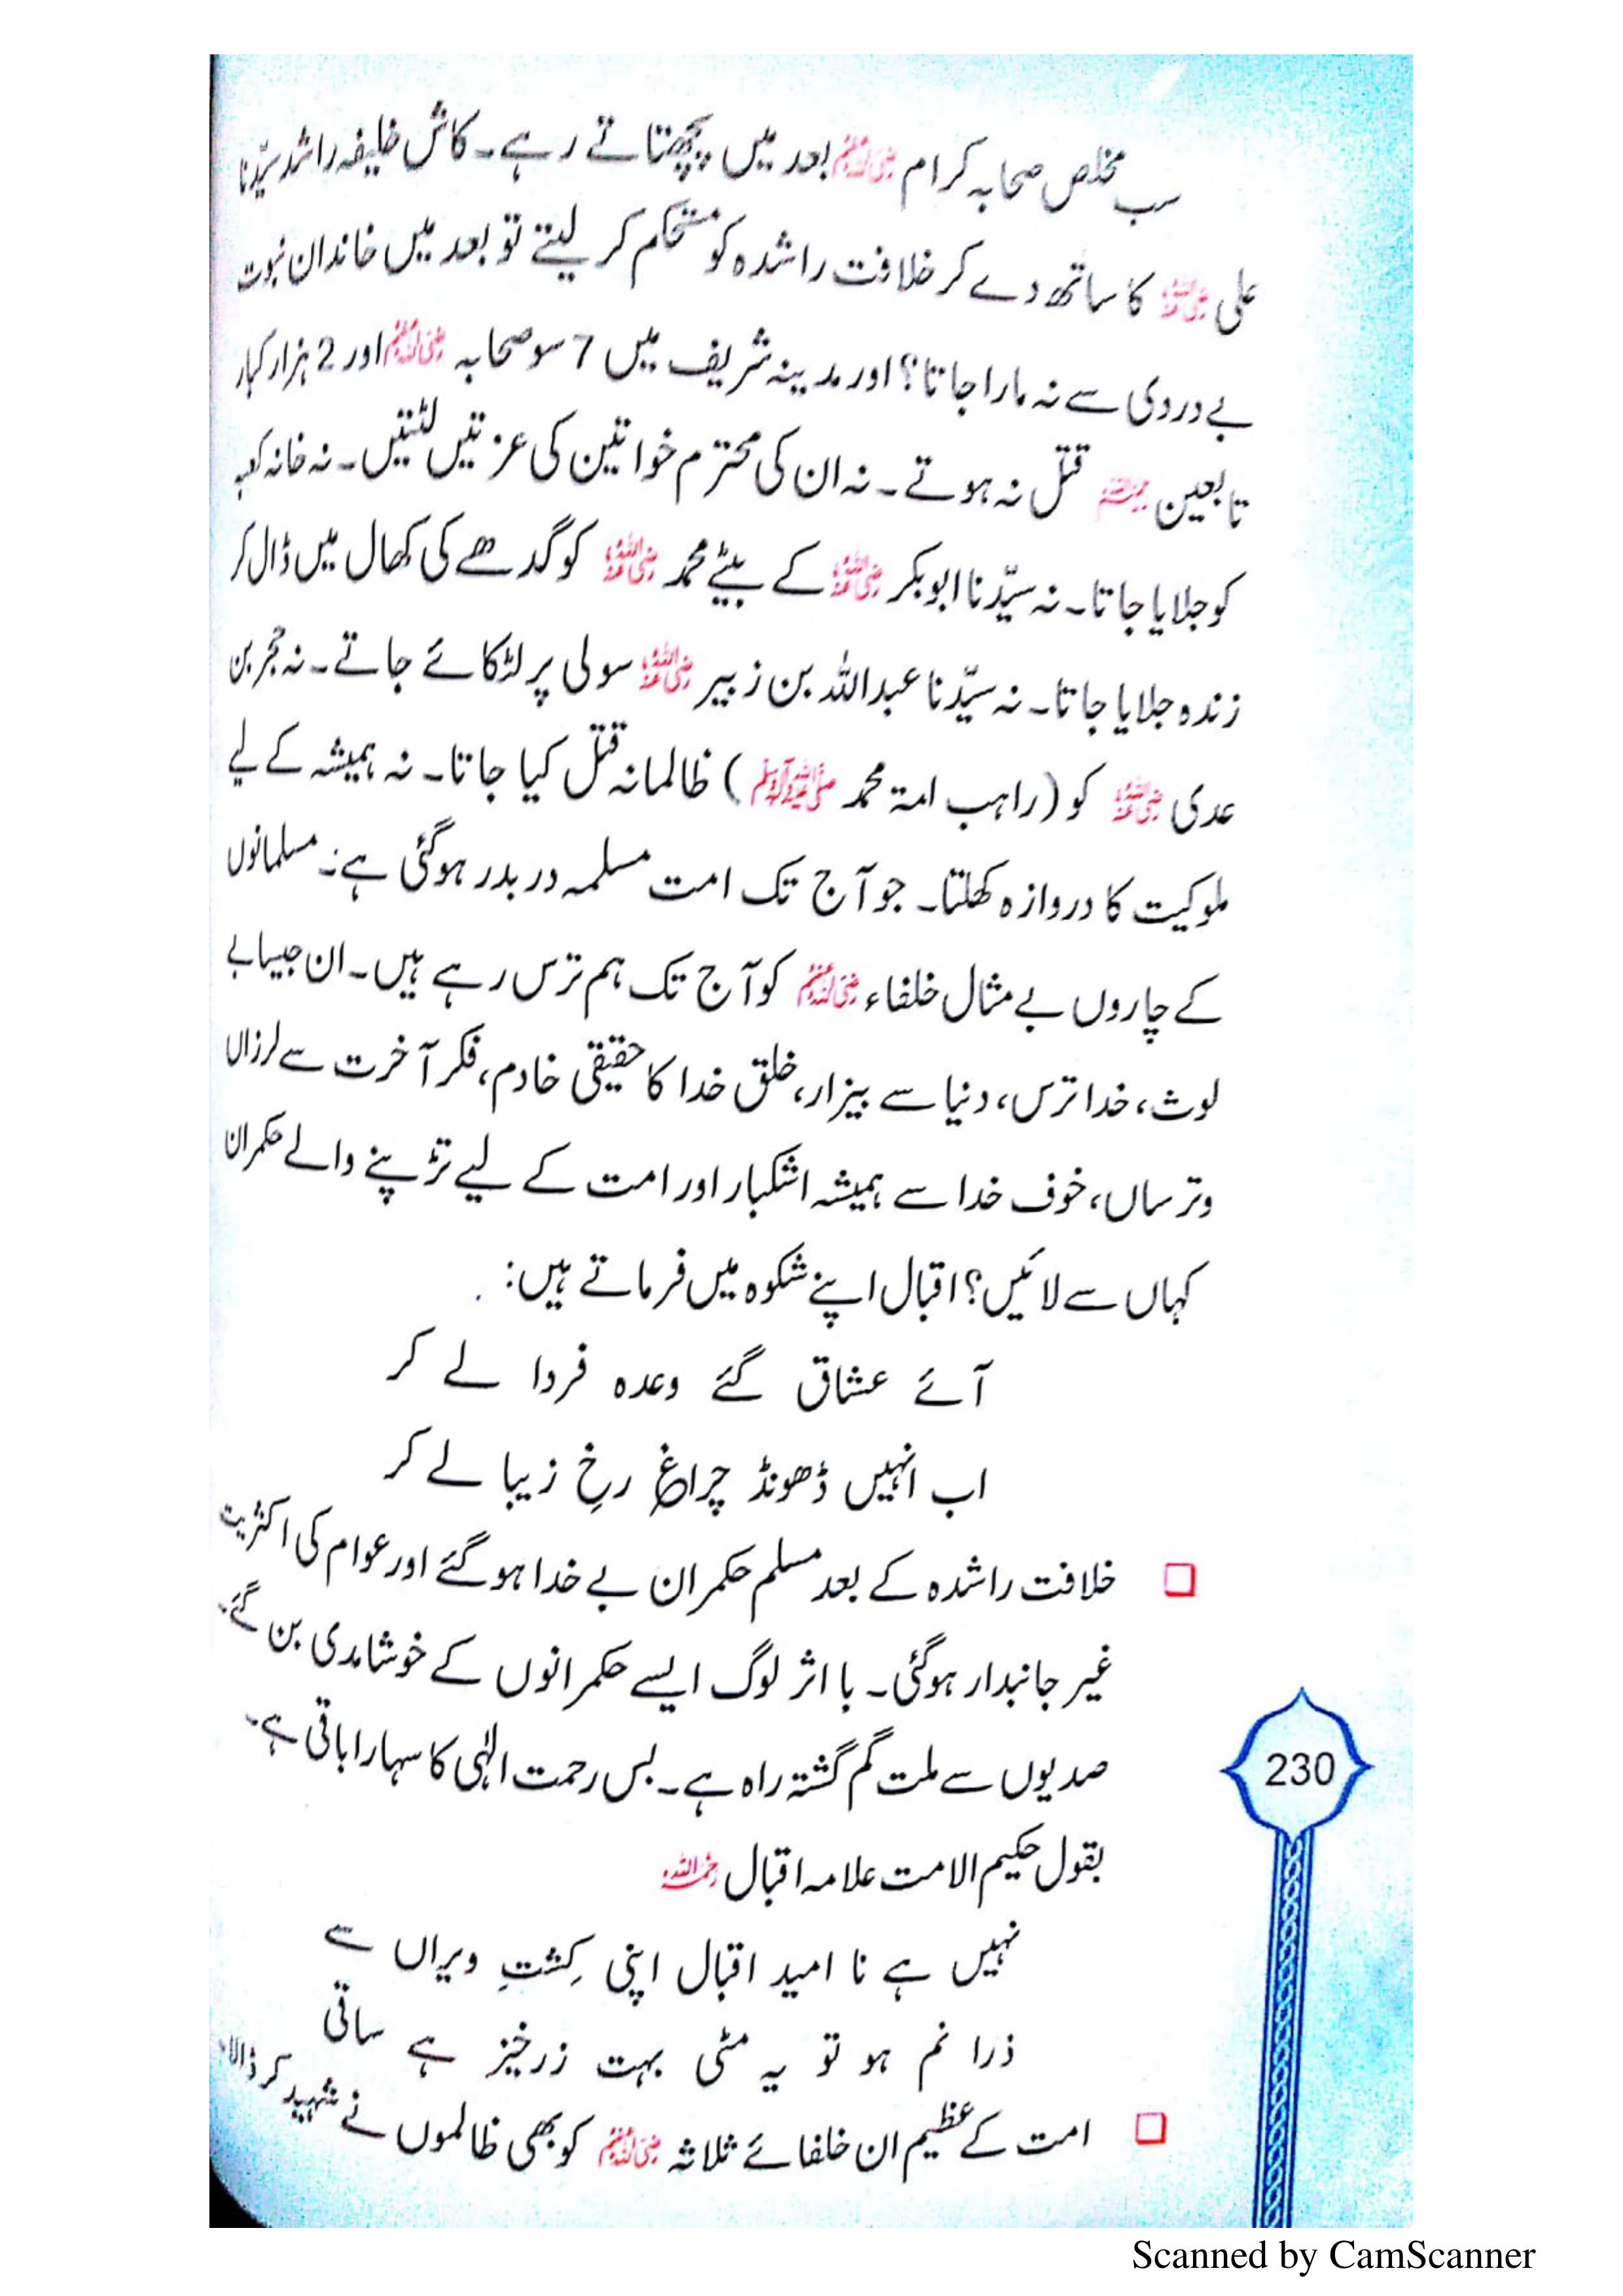 سب مخلص صحابہ کرام رضی اللہ عنہم بعد میں پچھتاتے رہے۔ کاش خلیفہ راشد سیّدنا
علی رضی اللہ عنہ کا ساتھ دے کر خلافت راشدہ کو مستحکم کر لیتے تو بعد میں خاندان نبوت
بے دردی سے نہ مارا جاتا؟ اور مدینہ شریف میں 7 سو صحابہ رضی اللہ عنہم اور 2 ہزار کبار
تابعین رحمہم اللہ قتل نہ ہوتے۔ نہ ان کی محترم خواتین کی عزتیں لٹتیں۔ نہ خانہ کعبہ
کو جلایا جاتا۔ نہ سیّدنا ابوبکر رضی اللہ عنہ کے بیٹے محمد رضی اللہ عنہ کو گدھے کی کھال میں ڈال کر
زندہ جلایا جاتا۔ نہ سیّدنا عبداللہ بن زبیر رضی اللہ عنہ سولی پر لٹکائے جاتے۔ نہ حجر بن
عدی رضی اللہ عنہ کو (راہب امۃ محمد ﷺ) ظالمانہ قتل کیا جاتا۔ نہ ہمیشہ کے لیے
ملوکیت کا دروازہ کھلتا۔ جو آج تک امت مسلمہ در بدر ہوگئی ہے۔ مسلمانوں
کے چاروں بے مثال خلفاء رضی اللہ عنہم کو آج تک ہم ترس رہے ہیں۔ ان جیسا بے
لوث، خدا ترس، دنیا سے بیزار، خلق خدا کا حقیقی خادم، فکر آخرت سے لرزاں
وترساں، خوف خدا سے ہمیشہ اشکبار اور امت کے لیے تڑپنے والے حکمران
کہاں سے لائیں؟ اقبال اپنے شکوہ میں فرماتے ہیں:
آئے عشاق گئے وعدہ فردا لے کر
اب انہیں ڈھونڈ چراغِ رخِ زیبا لے کر
❏ خلافت راشدہ کے بعد مسلم حکمران بے خدا ہوگئے اور عوام کی اکثریت
غیر جانبدار ہوگئی۔ با اثر لوگ ایسے حکمرانوں کے خوشامدی بن گئے۔
صدیوں سے ملت گم گشتہ راہ ہے۔ بس رحمت الٰہی کا سہارا باقی ہے۔
بقول حکیم الامت علامہ اقبال رحمہ اللہ
نہیں ہے نا امید اقبال اپنی کِشتِ ویراں سے
ذرا نم ہو تو یہ مٹی بہت زرخیز ہے ساقی
❏ امت کے عظیم ان خلفائے ثلاثہ رضی اللہ عنہم کو بھی ظالموں نے شہید کر ڈالا۔
230
Scanned by CamScanner